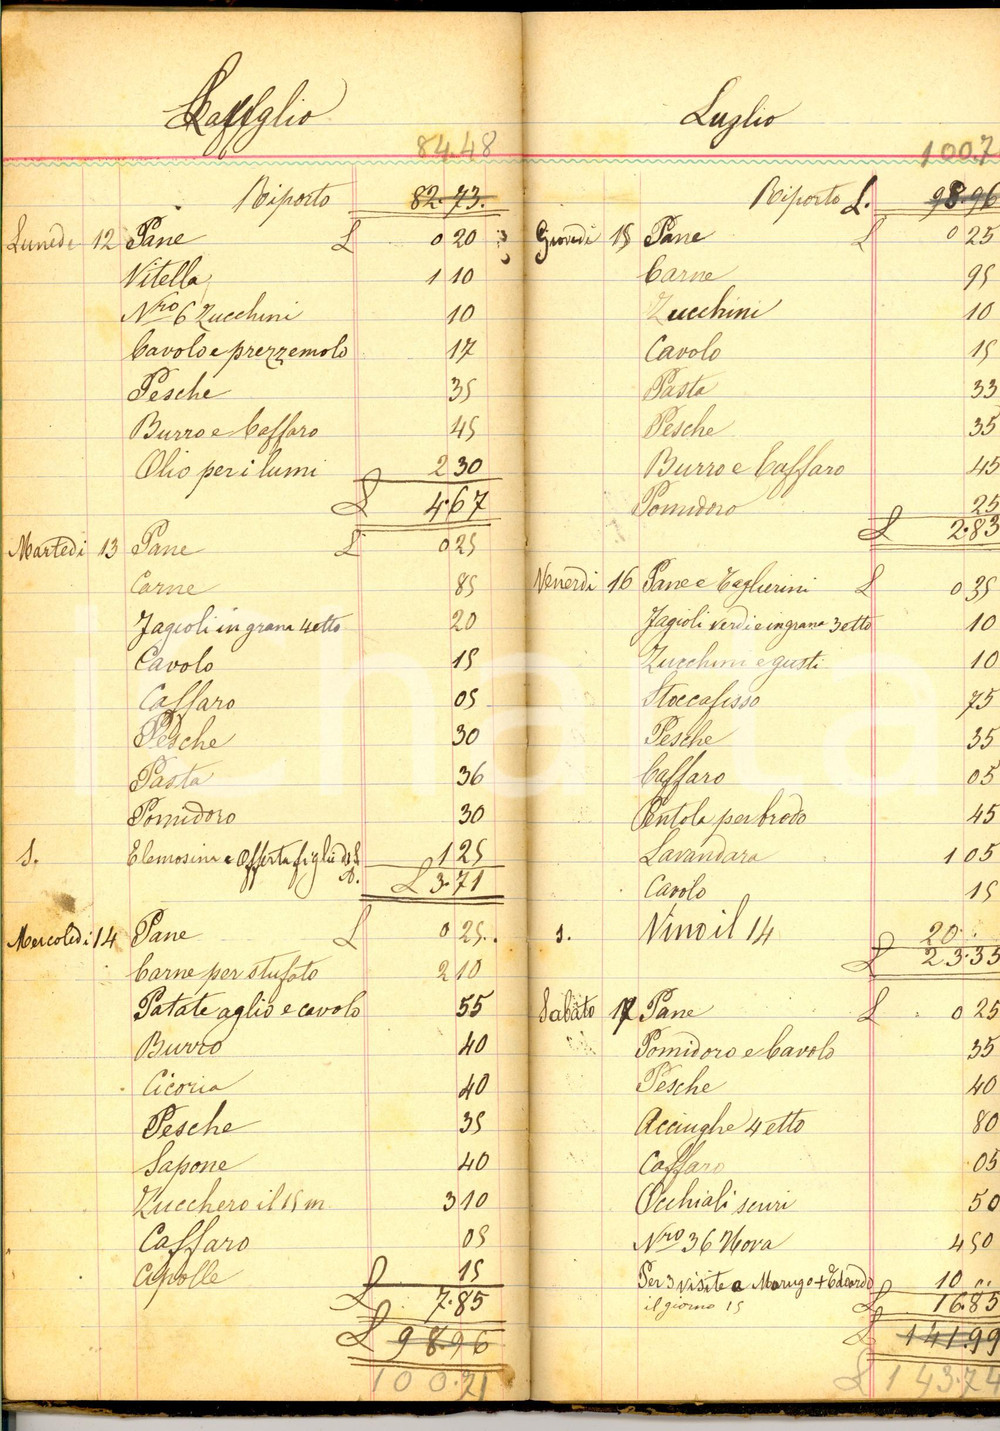 Luglio
84.48
Riporto 82.73.
Lunedi 12 Pane £ 0 20
Vitella 1 10
Nro 6 Zucchini 10
Cavolo e prezzemolo 17
Pesche 35
Burro e Caffaro 45
Olio per i lumi 2 30
£ 4.67
Martedi 13 Pane £ 0 25
Carne 85
Fagioli in grana 4 etto 20
Cavolo 15
Caffaro 05
Pesche 30
Pasta 36
Pomidoro 30
s. Elemosina e Offerta figlie di S. A. 1 25
£ 3.71
Mercoledi 14 Pane £ 0 25.
Carne per stufato 2 10
Patate aglio e cavolo 55
Burro 40
Cicoria 40
Pesche 35
Sapone 40
Zucchero il 15 m 3 10
Caffaro 05
Cipolle 15
£ 7.85
£ 98.96
100.71
Luglio
100.7
Riporto £. 98.96
Giovedi 15 Pane £ 0 25
Carne 95
Zucchini 10
Cavolo 15
Pasta 33
Pesche 35
Burro e Caffaro 45
Pomidoro 25
£ 2.83
Venerdi 16 Pane e Taglierini £ 0 35
Fagioli verdi e in grana 3 etto 10
Zucchini e gusti 10
Stoccafisso 75
Pesche 35
Caffaro 05
Pentola per brodo 45
Lavandara 1 05
Cavolo 15
s. Vino il 14 20
£ 23.35
Sabato 17 Pane £ 0 25
Pomidoro e Cavolo 35
Pesche 40
Acciughe 4 etto 80
Caffaro 05
Occhiali scuri 50
Nro 36 Uova 4 50
Per 3 visite a Marugo + Edoardo 10
il giorno 15
£ 16.85
£ 141.99
£ 143.74